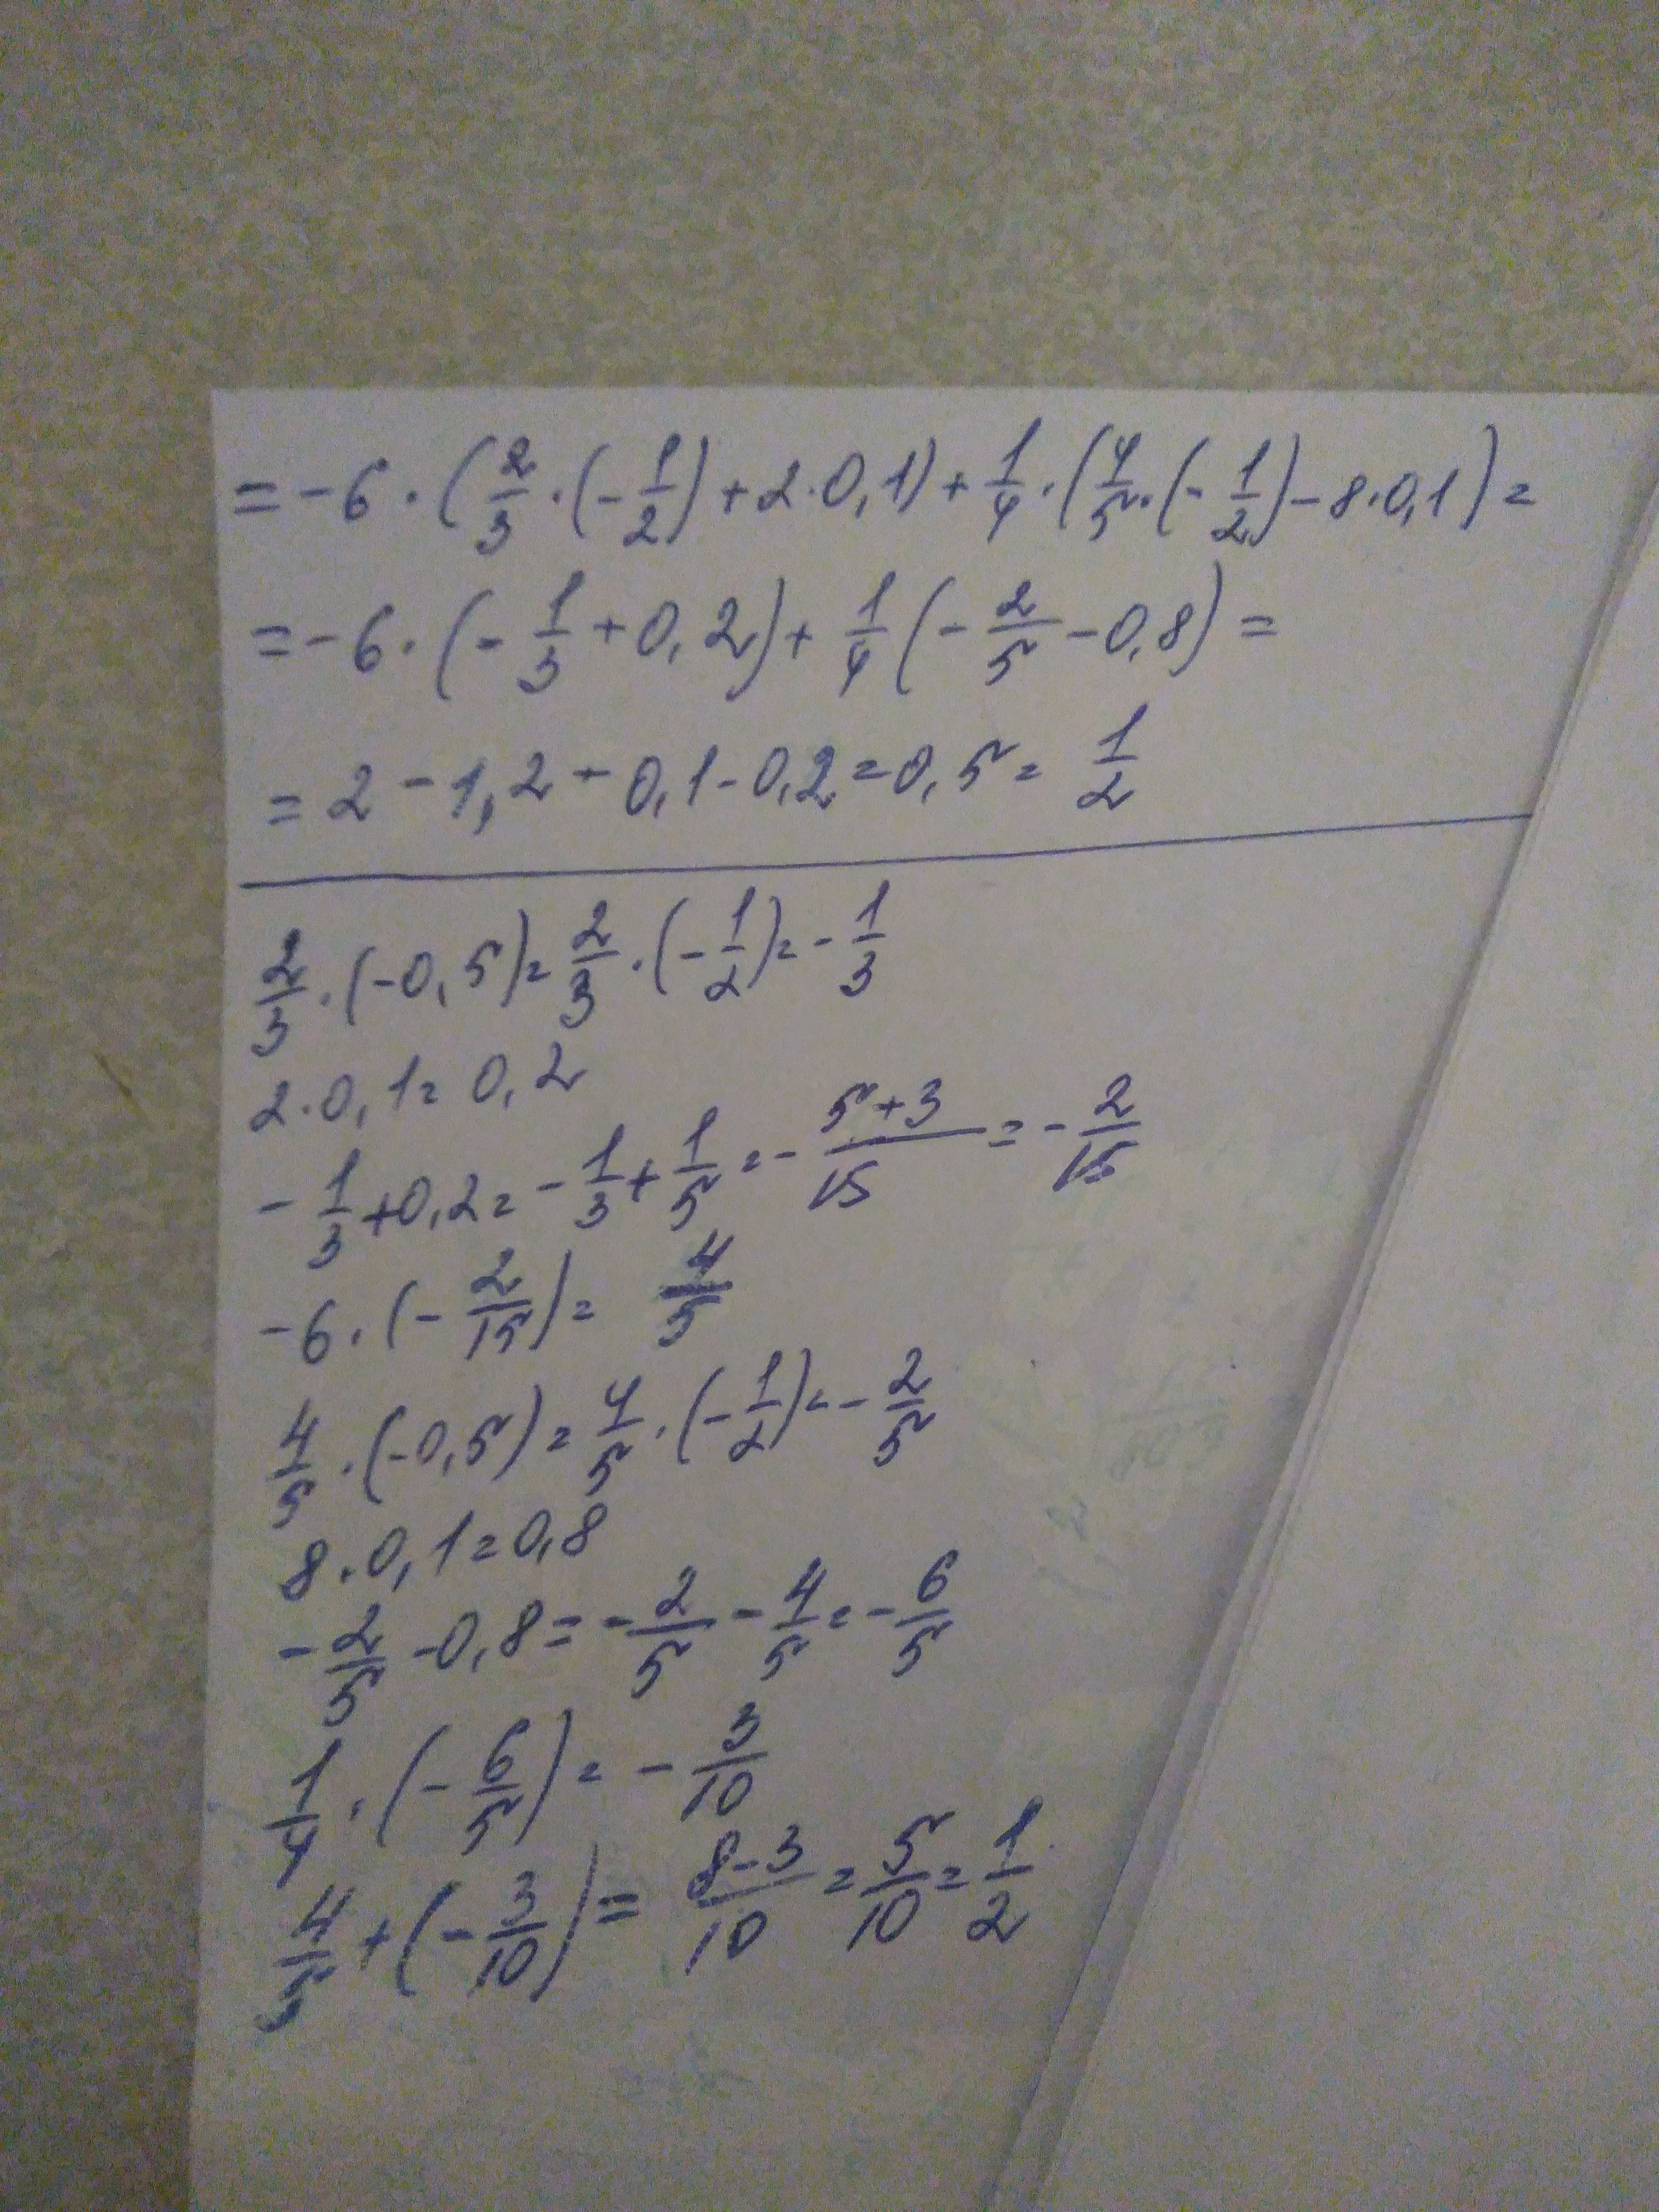 = -6 · (2/3 · (-1/2) + 2 · 0,1) + 1/4 · (4/5 · (-1/2) - 8 · 0,1) =
= -6 · (-1/3 + 0,2) + 1/4 (-2/5 - 0,8) =
= 2 - 1,2 - 0,1 - 0,2 = 0,5 = 1/2
2/3 · (-0,5) = 2/3 · (-1/2) = -1/3
2 · 0,1 = 0,2
-1/3 + 0,2 = -1/3 + 1/5 = - (5+3)/15 = -2/15
-6 · (-2/15) = 4/5
4/5 · (-0,5) = 4/5 · (-1/2) = -2/5
8 · 0,1 = 0,8
-2/5 - 0,8 = -2/5 - 4/5 = -6/5
1/4 · (-6/5) = -3/10
4/5 + (-3/10) = (8-3)/10 = 5/10 = 1/2